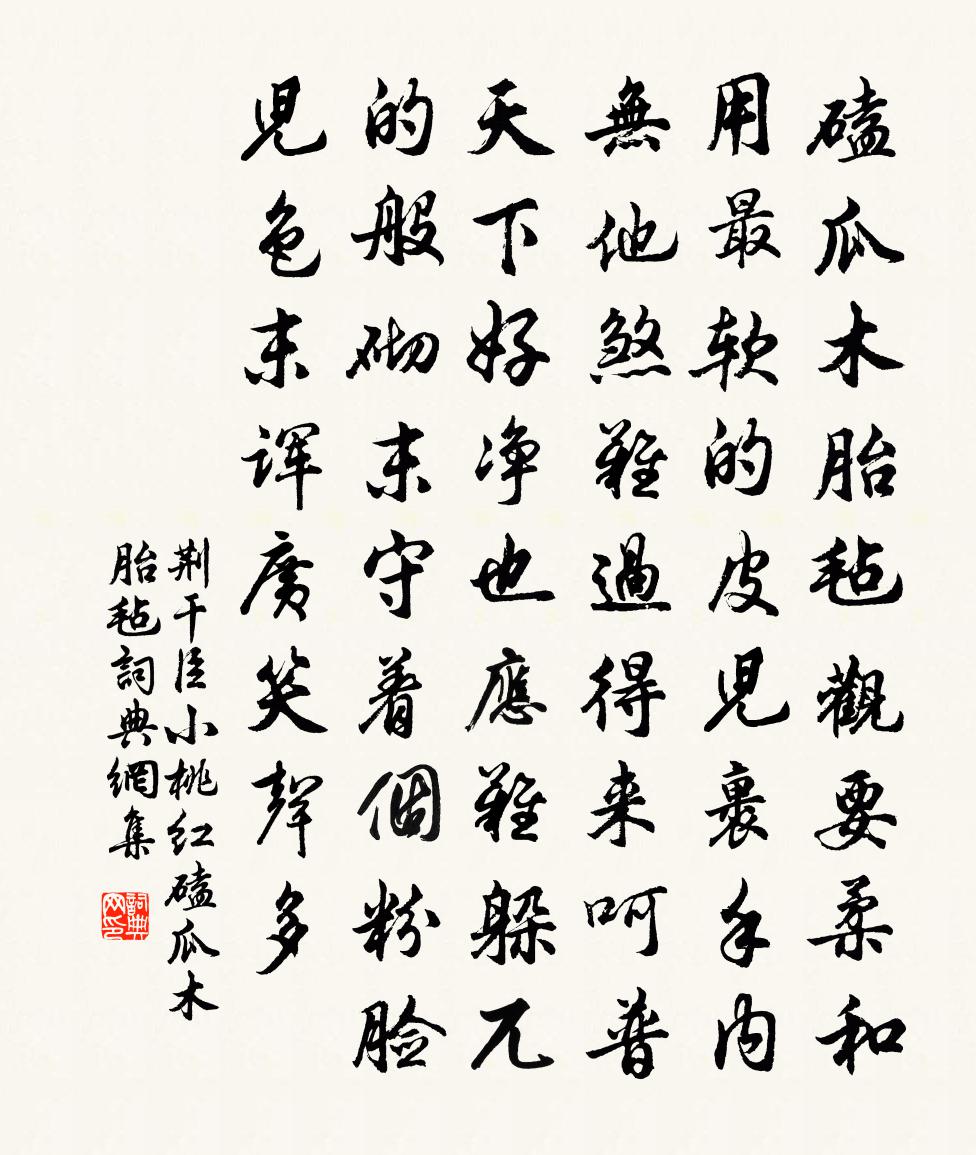 磕瓜木胎毡觀要柔和
用最软的皮兒裹手内
無他煞難過得来呵普
天下好净也應難躲兀
的般砌末守着個粉脸
兒色末诨廣笑聲多
荆干臣小桃红磕瓜木
胎毡詞典網集
詞典网印